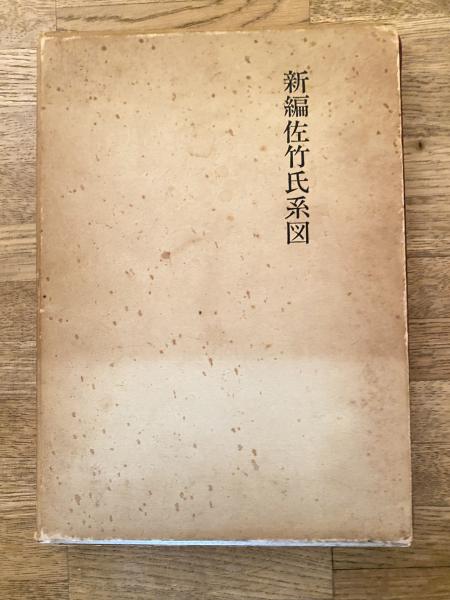 新編佐竹氏系図